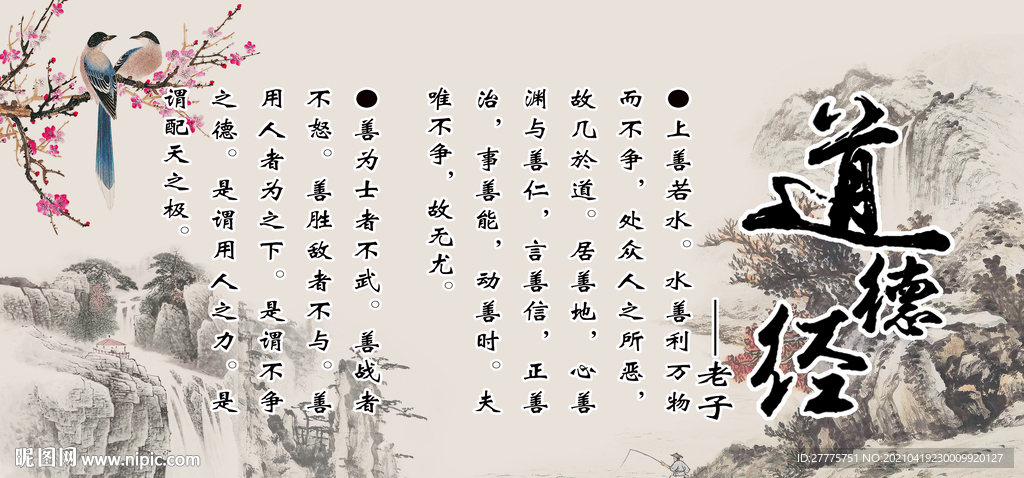 道德经
——老子
●上善若水。水善利万物
而不争，处众人之所恶，
故几於道。居善地，心善
渊与善仁，言善信，正善
治，事善能，动善时。夫
唯不争，故无尤。
●善为士者不武。善战者
不怒。善胜敌者不与。善
用人者为之下。是谓不争
之德。是谓用人之力。是
谓配天之极。
昵图网 www.nipic.com
ID:27775751 NO:20210419230009920127